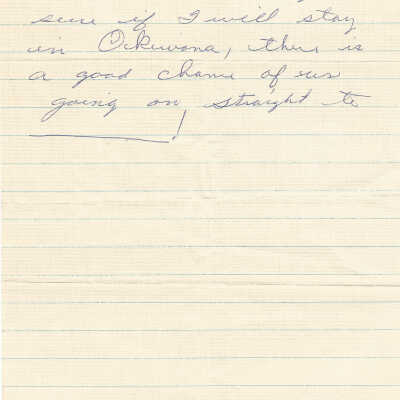 sure if I will stay
in Okiwona, there is
a good chance of us
going on straight to
________!